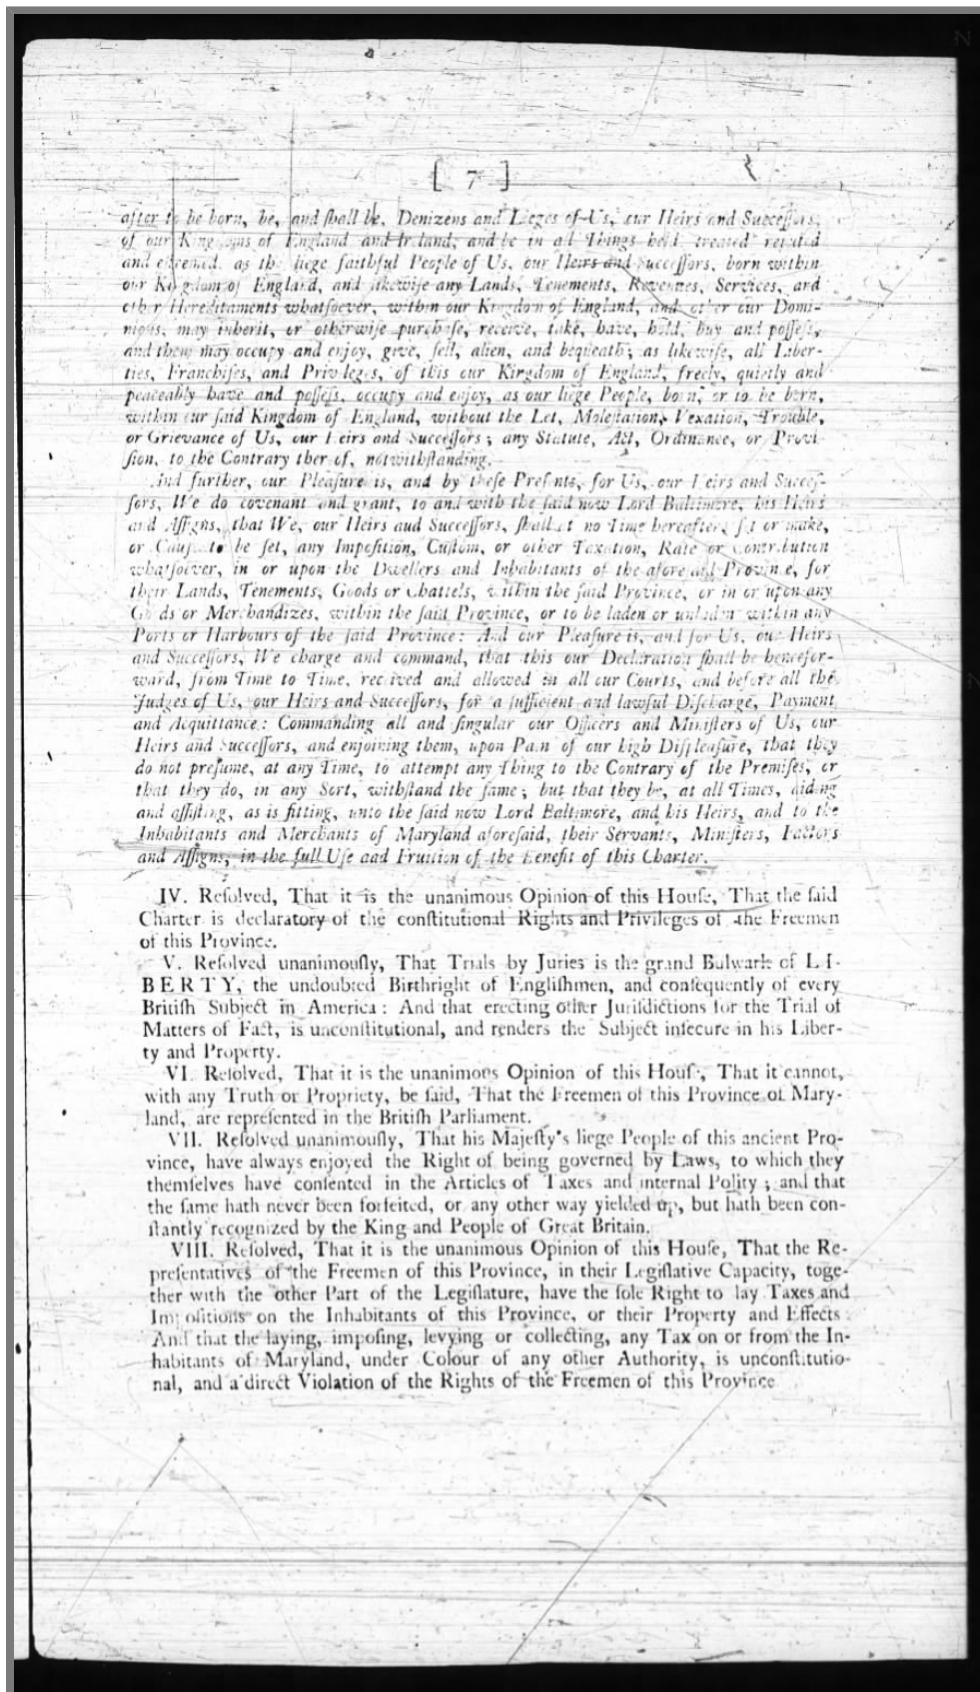 [ 7 ]
after to be born, be, and ſhall be, Denizens and Lieges of Us, our Heirs and Succeſſors,
of our Kingdoms of England and Ireland, and be in all Things held, treated reputed
and eſteemed, as the liege faithful People of Us, our Heirs and Succeſſors, born within
our Kingdom of England, and likewiſe any Lands, Tenements, Revenues, Services, and
other Hereditaments whatſoever, within our Kingdom of England, and other our Domi-
nions, may inherit, or otherwiſe purchaſe, receive, take, have, hold, buy and poſſeſs,
and them may occupy and enjoy, give, ſell, alien, and bequeath; as likewiſe, all Liber-
ties, Franchiſes, and Privileges, of this our Kingdom of England, freely, quietly and
peaceably have and poſſeſs, occupy and enjoy, as our liege People, born, or to be born,
within our ſaid Kingdom of England, without the Let, Moleſtation, Vexation, Trouble,
or Grievance of Us, our Heirs and Succeſſors; any Statute, Act, Ordinance, or Provi-
ſion, to the Contrary thereof, notwithſtanding.
And further, our Pleaſure is, and by theſe Preſents, for Us, our Heirs and Succeſ-
ſors, We do covenant and grant, to and with the ſaid now Lord Baltimore, his Heirs
and Aſſigns, that We, our Heirs aud Succeſſors, ſhall at no Time hereafter, ſet or make,
or Cauſe to be ſet, any Impoſition, Cuſtom, or other Taxation, Rate or Contribution
whatſoever, in or upon the Dwellers and Inhabitants of the aforeſaid Province, for
their Lands, Tenements, Goods or Chattels, within the ſaid Province, or in or upon any
Goods or Merchandizes, within the ſaid Province, or to be laden or unladen within any
Ports or Harbours of the ſaid Province: And our Pleaſure is, and for Us, our Heirs
and Succeſſors, We charge and command, that this our Declaration ſhall be hencefor-
ward, from Time to Time, received and allowed in all our Courts, and before all the
Judges of Us, our Heirs and Succeſſors, for a ſufficient and lawful Diſcharge, Payment
and Acquittance: Commanding all and ſingular our Officers and Miniſters of Us, our
Heirs and Succeſſors, and enjoining them, upon Pain of our high Diſpleaſure, that they
do not preſume, at any Time, to attempt any Thing to the Contrary of the Premiſes, or
that they do, in any Sort, withſtand the ſame; but that they be, at all Times, aiding
and aſſiſting, as is fitting, unto the ſaid now Lord Baltimore, and his Heirs, and to the
Inhabitants and Merchants of Maryland aforeſaid, their Servants, Miniſters, Factors
and Aſſigns, in the full Uſe aad Fruition of the Benefit of this Charter.
IV. Reſolved, That it is the unanimous Opinion of this Houſe, That the ſaid
Charter is declaratory of the conſtitutional Rights and Privileges of the Freemen
of this Province.
V. Reſolved unanimouſly, That Trials by Juries is the grand Bulwark of L I-
B E R T Y, the undoubted Birthright of Engliſhmen, and conſequently of every
Britiſh Subject in America: And that erecting other Juriſdictions for the Trial of
Matters of Fact, is unconſtitutional, and renders the Subject inſecure in his Liber-
ty and Property.
VI. Reſolved, That it is the unanimous Opinion of this Houſe, That it cannot,
with any Truth or Propriety, be ſaid, That the Freemen of this Province of Mary-
land, are repreſented in the Britiſh Parliament.
VII. Reſolved unanimouſly, That his Majeſty's liege People of this ancient Pro-
vince, have always enjoyed the Right of being governed by Laws, to which they
themſelves have conſented in the Articles of Taxes and internal Polity; and that
the ſame hath never been forfeited, or any other way yielded up, but hath been con-
ſtantly recognized by the King and People of Great Britain.
VIII. Reſolved, That it is the unanimous Opinion of this Houſe, That the Re-
preſentatives of the Freemen of this Province, in their Legiſlative Capacity, toge-
ther with the other Part of the Legiſlature, have the ſole Right to lay Taxes and
Impoſitions on the Inhabitants of this Province, or their Property and Effects
And that the laying, impoſing, levying or collecting, any Tax on or from the In-
habitants of Maryland, under Colour of any other Authority, is unconſtitutio-
nal, and a direct Violation of the Rights of the Freemen of this Province